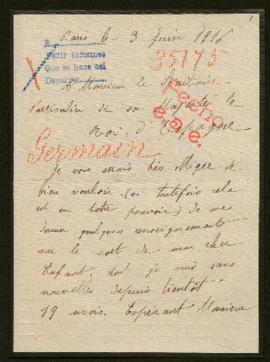 1
Paris le 3 Juin 1916
35175
Pedir informes
Que se hace del
A Monsieur le Secrétaire
Particulier de sa Majesté le
Roi d'Espagne
Fecho
Germain
Je vous serais très obligé de
bien vouloir (si toutefois cela
est en votre pouvoir) de me
donner quelques renseignements
sur le sort de mon cher
Enfant, dont je suis sans
nouvelles depuis bientôt
19 mois. Espérant Monsieur